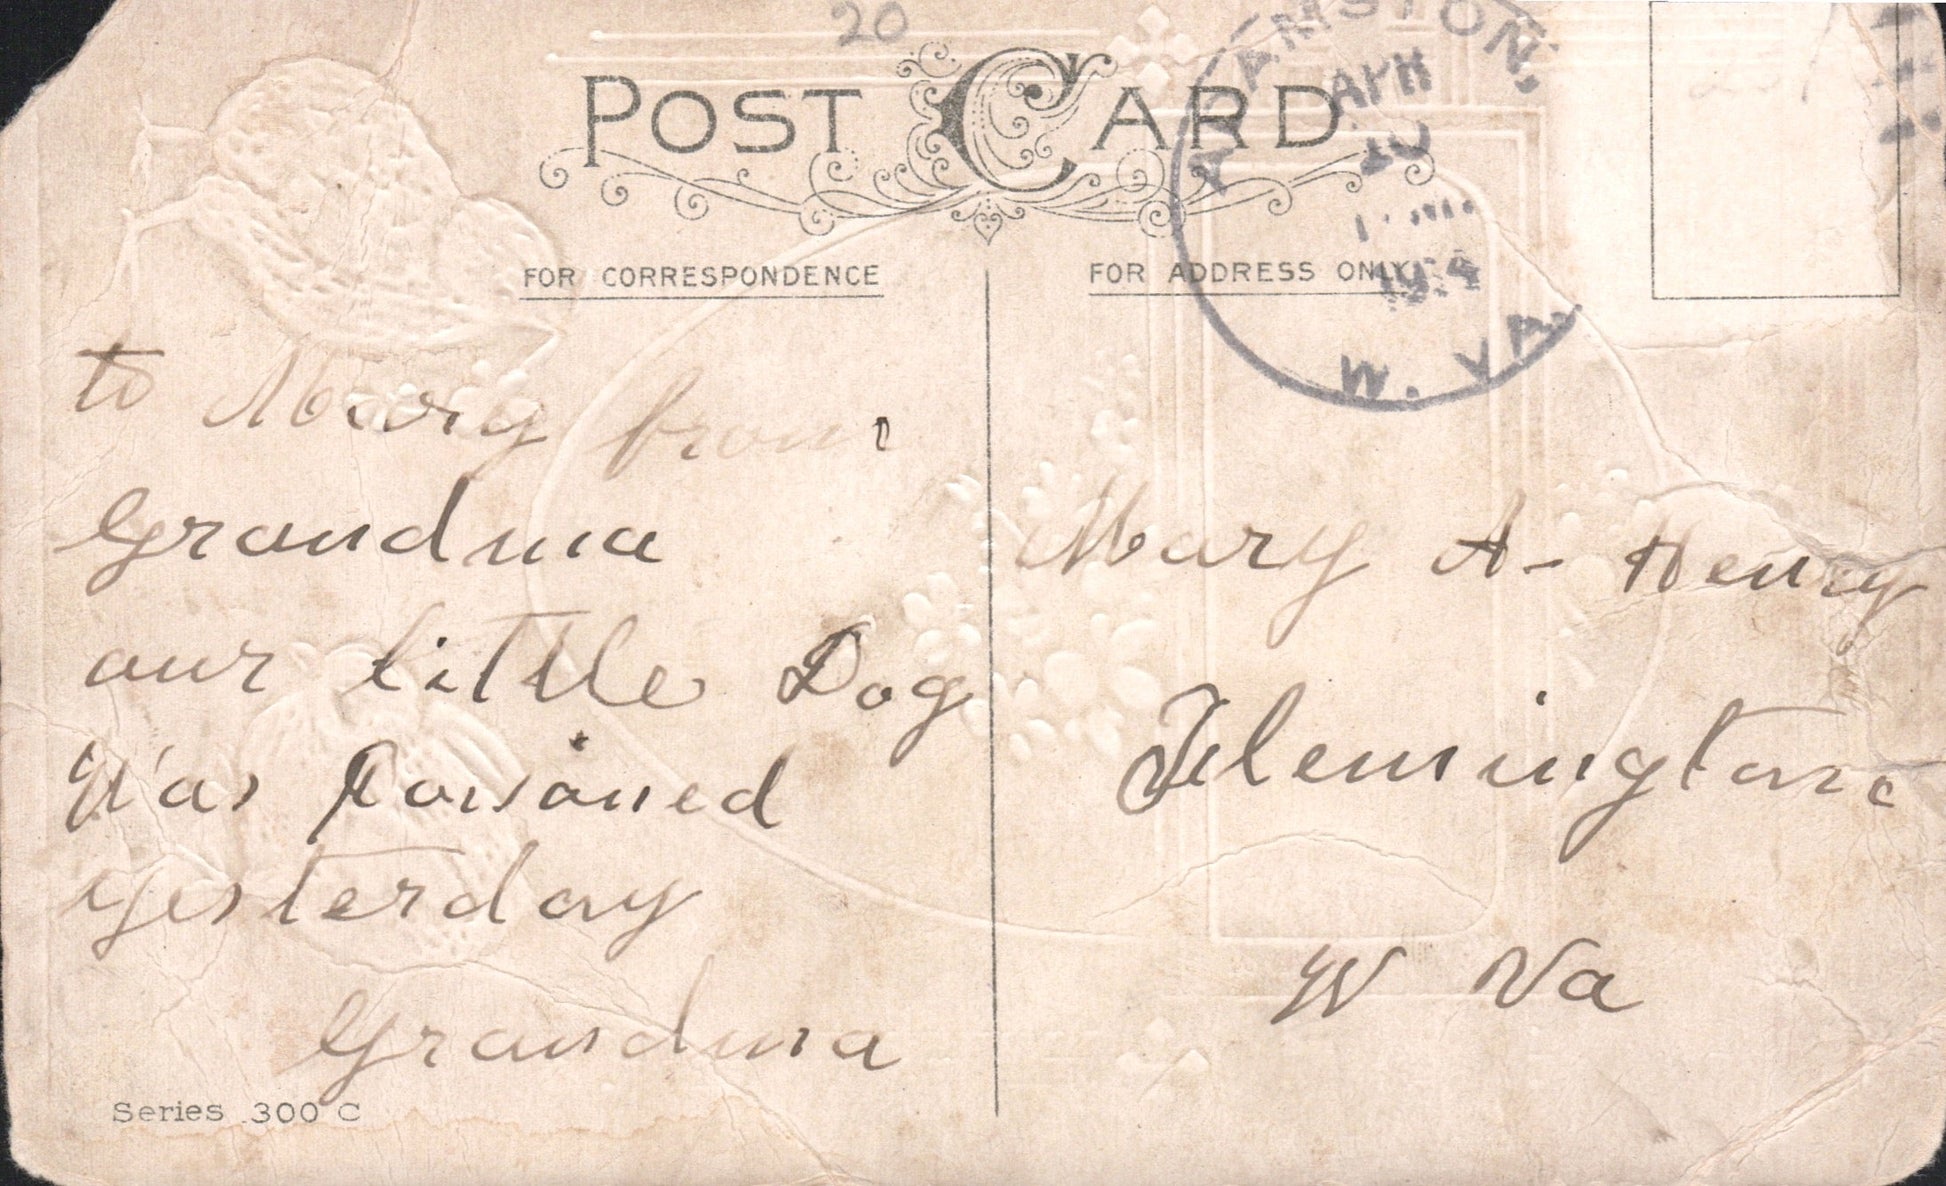 20
POST CARD
ADAMSTON,
APR
10
1914
W. VA.
FOR CORRESPONDENCE
FOR ADDRESS ONLY
to Mary from
Grandma
our little Dog
Was Poisoned
yesterday
Grandma
Mary A- Henry
Flemington
W Va
Series 300 C